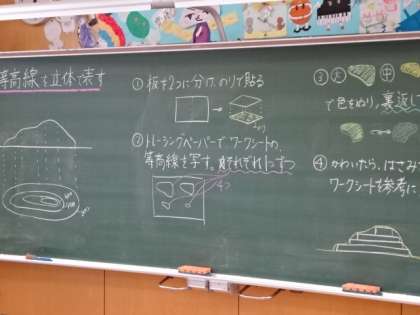 等高線を立体で表す
① 板を2つに分け、のりで貼る
のり
② トレーシングペーパーでワークシートの、
等高線を写す。
1つずつ
③ 大 中
で色をぬり、裏返し
④ かわいたら、はさみ
ワークシートを参考に